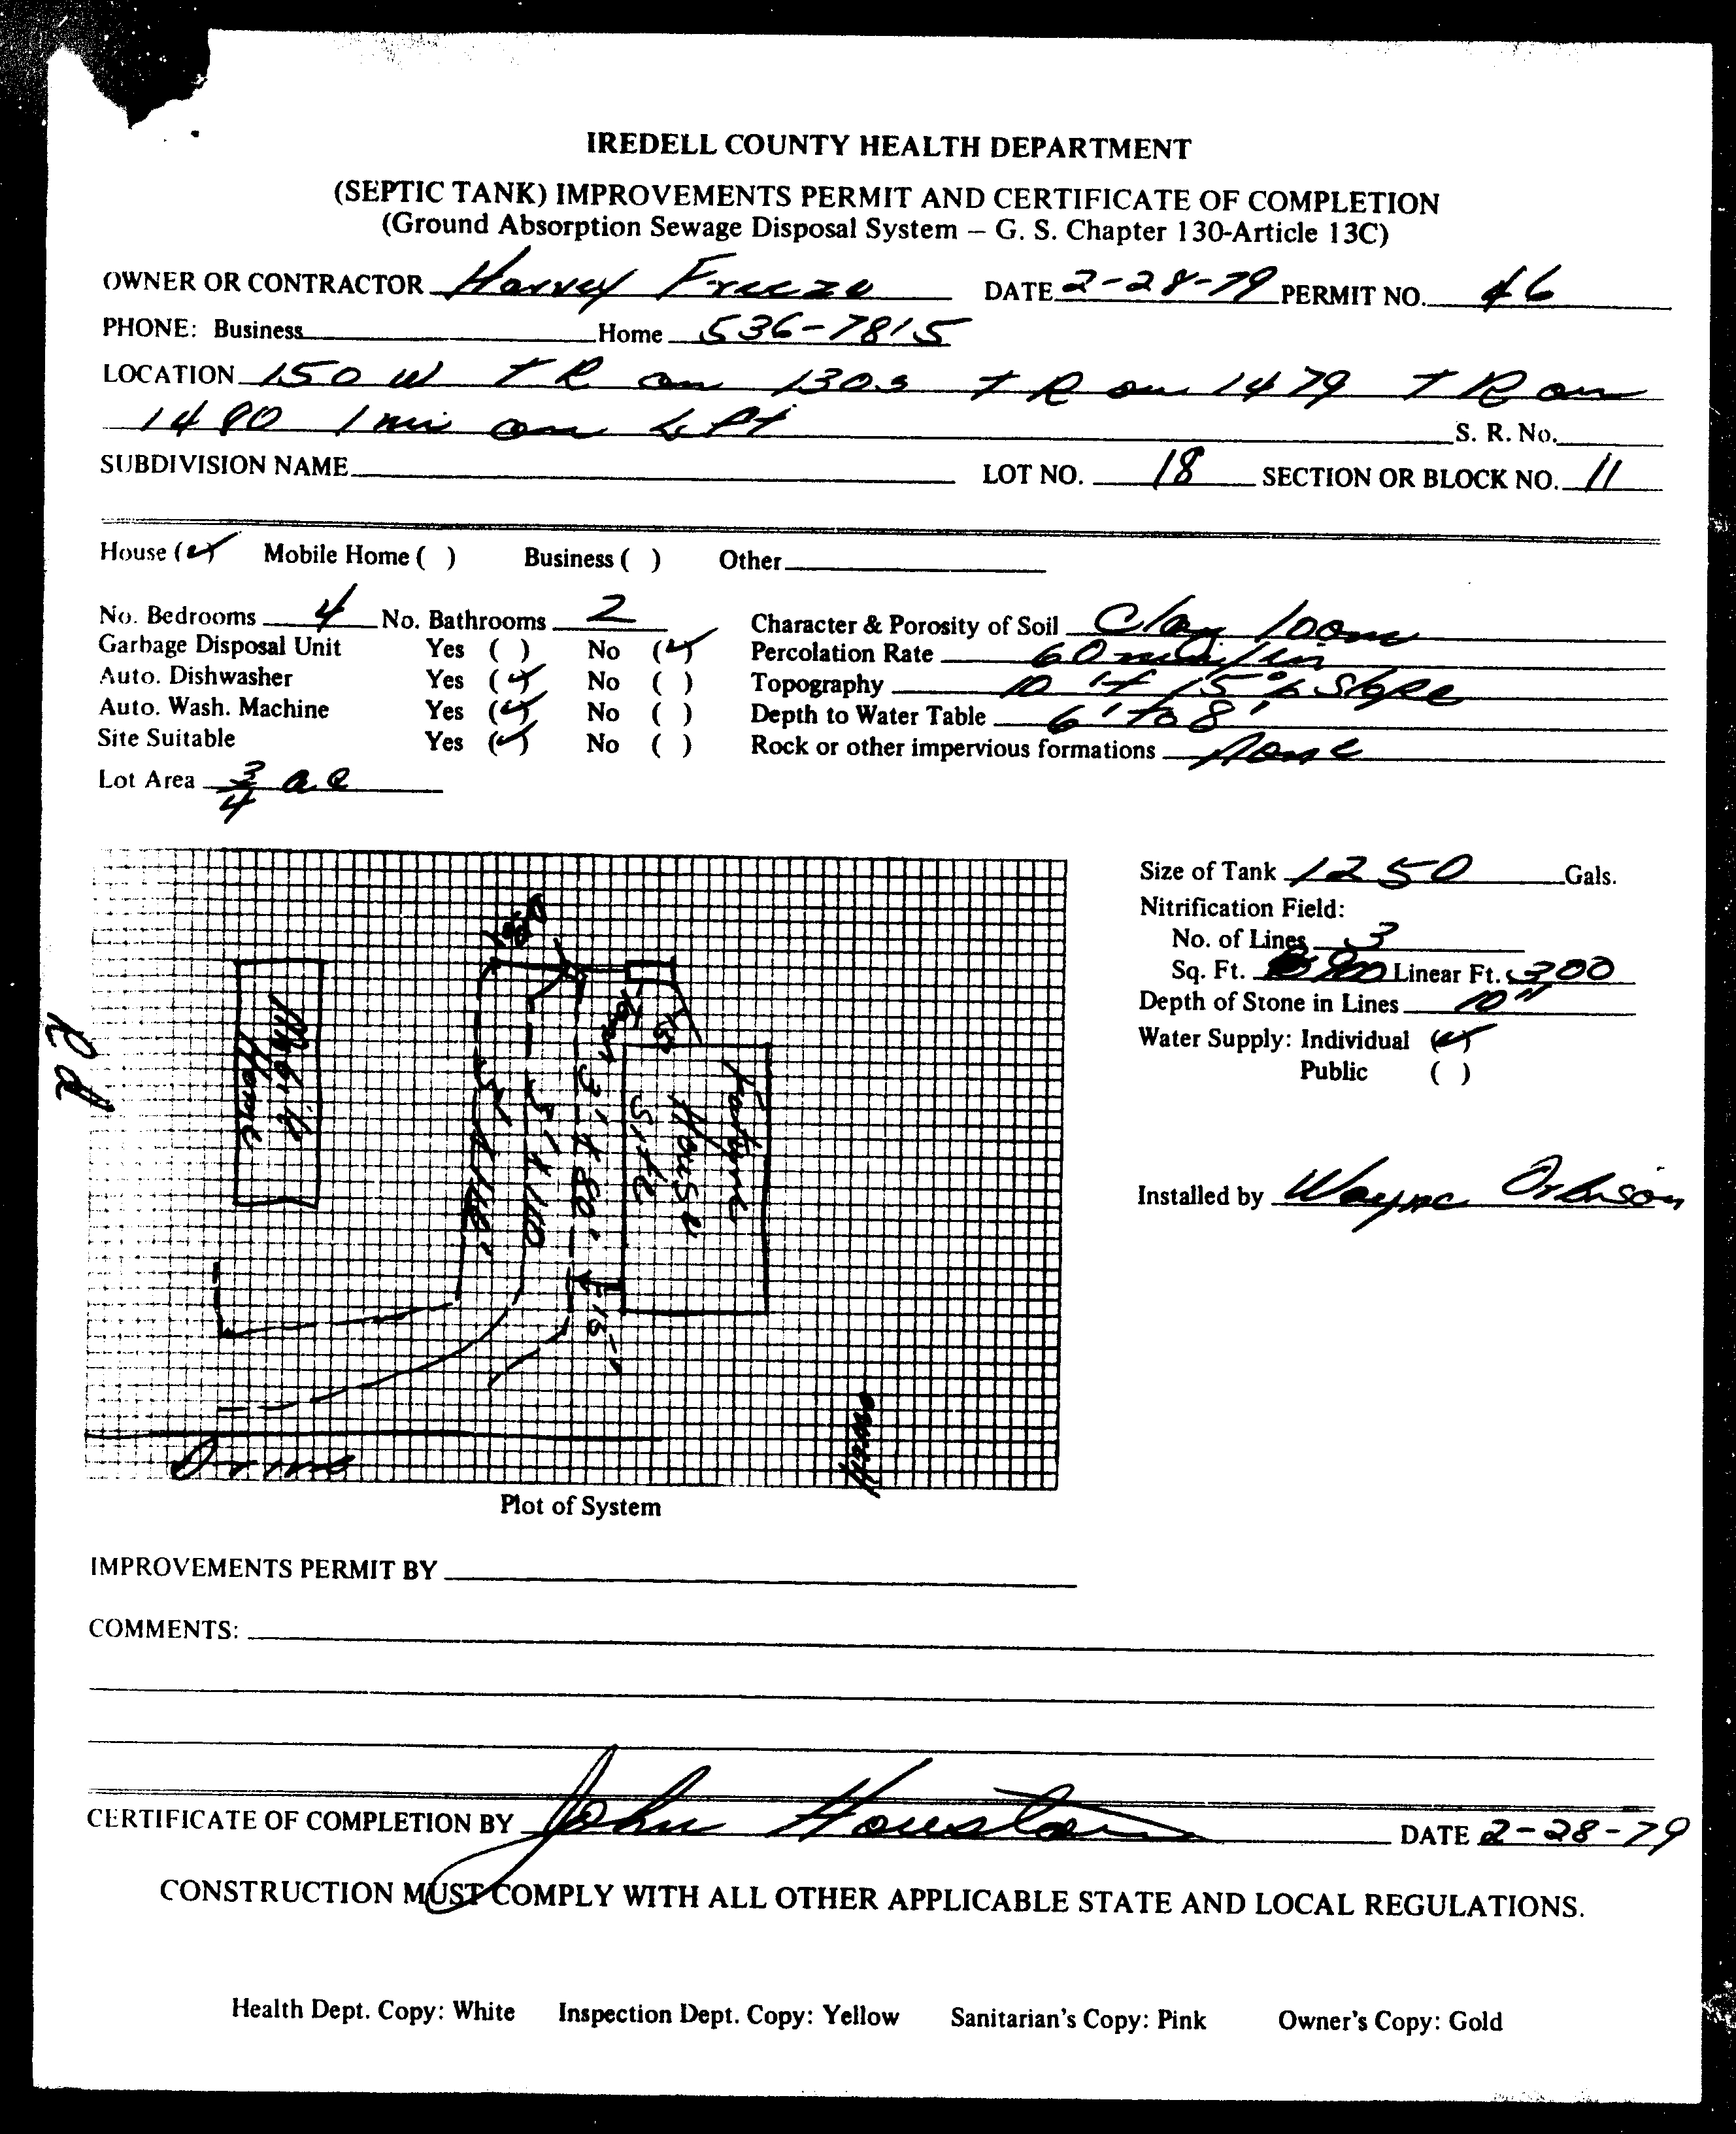 IREDELL COUNTY HEALTH DEPARTMENT
(SEPTIC TANK) IMPROVEMENTS PERMIT AND CERTIFICATE OF COMPLETION
(Ground Absorption Sewage Disposal System – G. S. Chapter 130-Article 13C)
OWNER OR CONTRACTOR Harvey Freeze DATE 2-28-79 PERMIT NO. 46
PHONE: Business Home 536-7815
LOCATION 150 W T R on 1303 T R on 1479 T R on
1480 1 mi on Lft S. R. No.
SUBDIVISION NAME LOT NO. 18 SECTION OR BLOCK NO. 11
House (✓) Mobile Home ( ) Business ( ) Other
No. Bedrooms 4 No. Bathrooms 2 Character & Porosity of Soil Clay loam
Garbage Disposal Unit Yes ( ) No (✓) Percolation Rate 60 min/in
Auto. Dishwasher Yes (✓) No ( ) Topography 10 to 15% Slope
Auto. Wash. Machine Yes (✓) No ( ) Depth to Water Table 6' to 8'
Site Suitable Yes (✓) No ( ) Rock or other impervious formations None
Lot Area 3/4 ac
Size of Tank 1250 Gals.
Nitrification Field:
No. of Lines 3
Sq. Ft. 900 Linear Ft. 300
Depth of Stone in Lines 10"
Water Supply: Individual (✓)
Public ( )
Installed by Wayne
Rd
Mobile
Home
3' x 110
3' x 80'
Future
House
Site
15'
Drive
Home
Plot of System
IMPROVEMENTS PERMIT BY
COMMENTS:
CERTIFICATE OF COMPLETION BY John Houston DATE 2-28-79
CONSTRUCTION MUST COMPLY WITH ALL OTHER APPLICABLE STATE AND LOCAL REGULATIONS.
Health Dept. Copy: White Inspection Dept. Copy: Yellow Sanitarian's Copy: Pink Owner's Copy: Gold